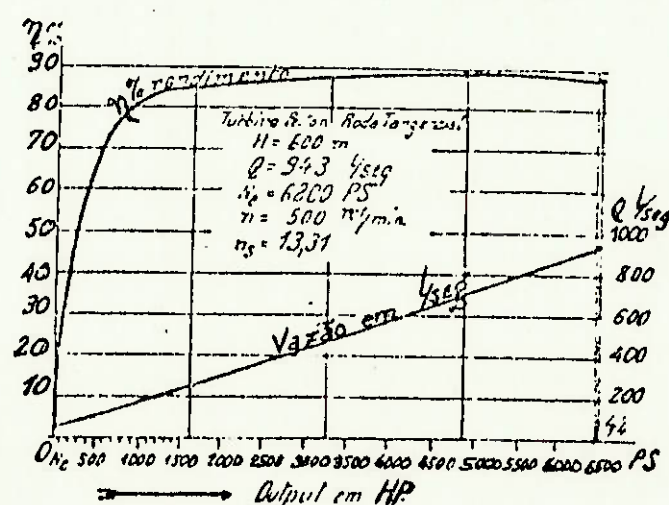 η%
90
80
70
60
50
40
30
20
10
0
η% rendimento
Turbina Pelton Roda Tangencial
H = 600 m
Q = 943 l/seg
Ne = 6200 PS
n = 500 r/min
ns = 13,31
Q l/seg
1000
800
600
400
200
Vazão em l/seg
Ne 500 1000 1500 2000 2500 3000 3500 4000 4500 5000 5500 6000 6500 PS
Output em HP.